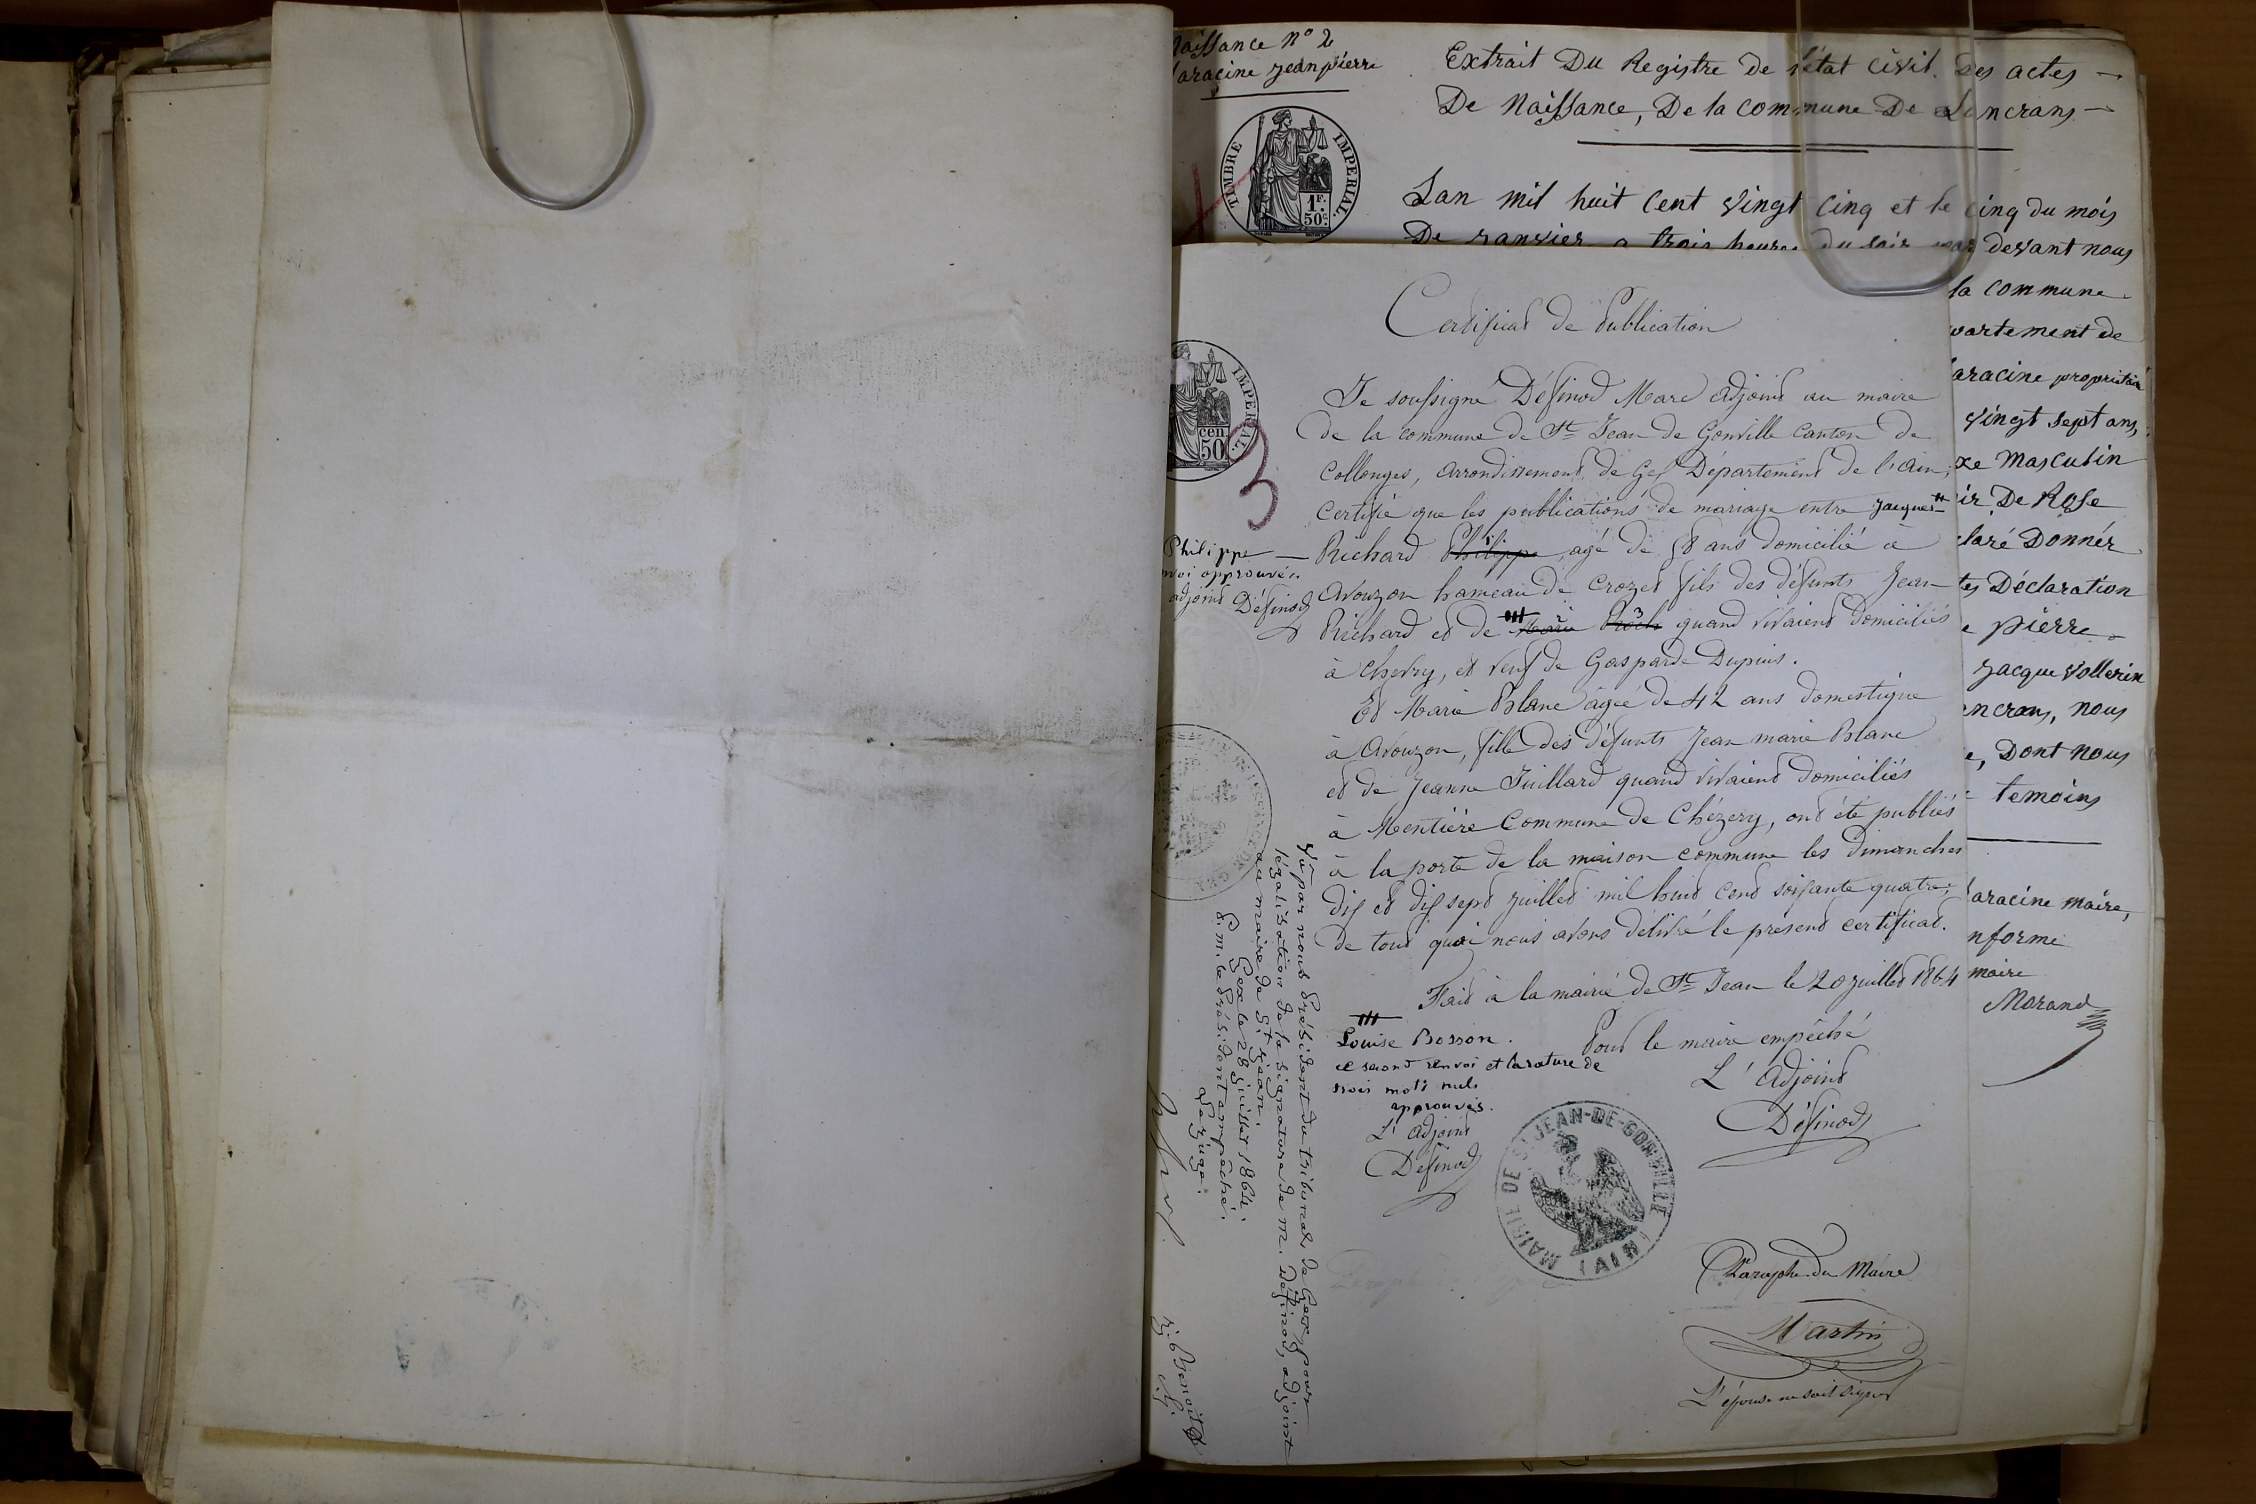 Naissance n° 2
Laracine jean pierre
TIMBRE IMPERIAL.
1F.
50c.
Extrait Du Registre de l'état civil. Des actes
De Naissance, De la commune De Lancrans
Lan mil huit Cent vingt Cinq et le cinq du mois
De janvier a trois heures du soir par devant nous
la commune
partement de
aracine propriétaire
vingt sept ans,
xe Masculin
ir De Rose
claré Donner
tes Déclaration
e pierre
jacque Vollerin
ncrans, nous
e, Dont nous
temoins
Laracine maire,
nforme
maire
Morand
Certificat de Publication
IMPERIAL.
cen
50
3
Je soussigné Définod Marc adjoint au maire
de la commune de St Jean de Gonville Canton de
Collonges, arrondissement de Gex Département de l'ain,
certifie que les publications de mariage entre jacques
Richard Philippe agé de 58 ans domicilié à
Avouzon hameau de Crozet fils des défunts Jean
Richard et de Marie Roch quand vivaient domiciliés
à Chevry, et veuf de Gasparde Dupuis.
Et Marie Blanc agée de 42 ans domestique
à Avouzon, fille des défunts Jean marie Blanc
et de Jeanne Juillard quand vivaient domiciliés
à Mentière Commune de Chézery, ont été publiés
à la porte de la maison commune les dimanches
dix et dix sept juillet mil huit cent soixante quatre;
de tout quoi nous avons délivré le présent certificat.
Fait à la mairie de St Jean le 20 juillet 1864
Philippe
nvoi approuvé.
adjoint Définod
Louise Bosson.
ce second renvoi et la rature de
trois mots nuls
approuvés.
L'adjoint
Définod
Pour le maire empêché
L'Adjoint
Définod
MAIRIE DE ST JEAN-DE-GONVILLE (AIN)
Paraphe du Maire
Martin
L'épouse ne sait signer
Vu par nous Président du tribunal de Gex, pour
légalisation de la signature de M. Définod, adjoint
au maire de St Jean.
Gex le 28 juillet 1864.
P. M. le Président empêché.
Le juge.